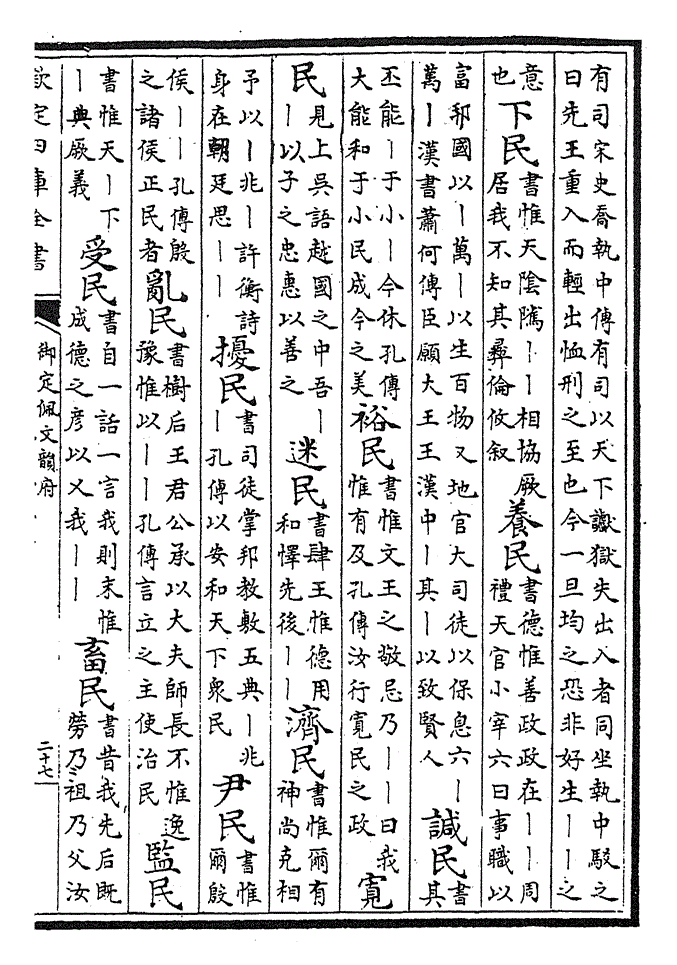 有司宋史喬執中傳有司以天下讞獄失出入者同坐執中駁之
曰先王重入而輕出恤刑之至也今一旦均之恐非好生丨丨之
意也下民書惟天陰隲丨丨相協厥居我不知其彝倫攸叙養民書德惟善政政在丨丨周禮天官小宰六曰事職以
富邦國以丨萬丨以生百物又地官大司徒以保息六丨萬丨漢書蕭何傳臣願大王王漢中丨其丨以致賢人諴民書其
丕能丨于小丨今休孔傳大能和于小民成今之美裕民書惟文王之敬忌乃丨丨曰我惟有及孔傳汝行寛民之政寛
民見上吳語越國之中吾丨丨以子之忠惠以善之迷民書肆王惟德用和懌先後丨丨濟民書惟爾有神尚克相
予以丨兆丨許衡詩身在朝廷思丨丨擾民書司徒掌邦教敷五典丨兆丨孔傳以安和天下衆民尹民書惟爾殷
侯丨丨孔傳殷之諸侯正民者亂民書樹后王君公承以大夫師長不惟逸豫惟以丨丨孔傳言立之主使治民監民
書惟天丨下丨典厥義受民書自一話一言我則末惟成德之彦以乂我丨丨畜民書昔我先后既勞乃祖乃父汝
欽定四庫全書
御定佩文韻府
二十七